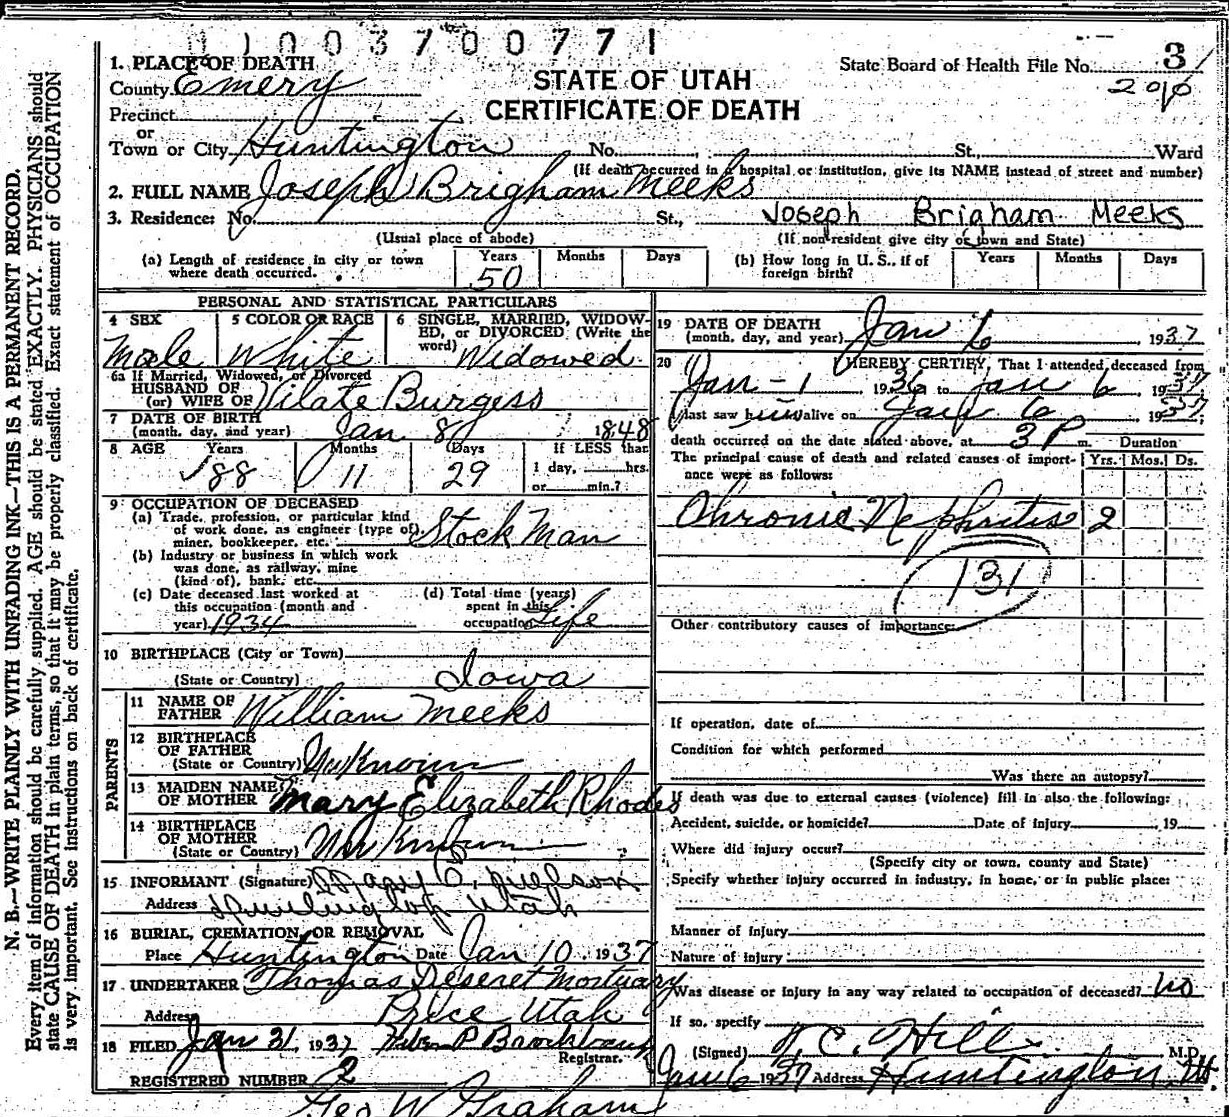 0 1 0 0 3 7 0 0 7 7 1
1. PLACE OF DEATH
County Emery
STATE OF UTAH
CERTIFICATE OF DEATH
State Board of Health File No. 3
Precinct
or
Town or City Huntington No. , St., Ward
(If death occurred in a hospital or institution, give its NAME instead of street and number)
2. FULL NAME Joseph Brigham Meeks
3. Residence: No. St., Joseph Brigham Meeks
(Usual place of abode) (If non-resident give city or town and State)
(a) Length of residence in city or town where death occurred. Years 50 Months Days
(b) How long in U. S., if of foreign birth? Years Months Days
PERSONAL AND STATISTICAL PARTICULARS
4 SEX Male
5 COLOR OR RACE White
6 SINGLE, MARRIED, WIDOWED, or DIVORCED (Write the word) Widowed
6a If Married, Widowed, or Divorced
HUSBAND OF
(or) WIFE OF Vilate Burgess
7 DATE OF BIRTH
(month, day, and year) Jan 8 1848
8 AGE Years 88 Months 11 Days 29 If LESS than
1 day, hrs.
or min.?
9 OCCUPATION OF DECEASED
(a) Trade, profession, or particular kind
of work done, as engineer (type of)
miner, bookkeeper, etc. Stock Man
(b) Industry or business in which work
was done, as railway, mine
(kind of), bank, etc.
(c) Date deceased last worked at
this occupation (month and
year) 1934
(d) Total time (years)
spent in this
occupation Life
10 BIRTHPLACE (City or Town)
(State or Country) Iowa
PARENTS
11 NAME OF
FATHER William Meeks
12 BIRTHPLACE
OF FATHER
(State or Country) Unknown
13 MAIDEN NAME
OF MOTHER Mary Elizabeth Rhodes
14 BIRTHPLACE
OF MOTHER
(State or Country) Unknown
15 INFORMANT (Signature) Mary E.
Address Huntington Utah
16 BURIAL, CREMATION, OR REMOVAL
Place Huntington Date Jan 10, 1937
17 UNDERTAKER Thomas Deseret Mortuary
Address Price Utah
18 FILED Jan 31, 1937
Registrar.
REGISTERED NUMBER 2
Geo W Graham
19 DATE OF DEATH
(month, day, and year) Jan 6, 1937
20 I HEREBY CERTIFY, That I attended deceased from
Jan - 1 1936 to Jan 6, 1937
I last saw him alive on Jan 6 1937
death occurred on the date stated above, at 3 P m. Duration
The principal cause of death and related causes of import- Yrs. Mos. Ds.
ance were as follows:
Chronic Nephritis 2
131
Other contributory causes of importance:
If operation, date of
Condition for which performed
Was there an autopsy?
If death was due to external causes (violence) fill in also the following:
Accident, suicide, or homicide? Date of injury , 19
Where did injury occur?
(Specify city or town, county and State)
Specify whether injury occurred in industry, in home, or in public place:
Manner of injury
Nature of injury
Was disease or injury in any way related to occupation of deceased? no
If so, specify
(Signed) C. Hill M.D.
Jan 6 1937 Address Huntington, Ut.
N. B.—WRITE PLAINLY WITH UNFADING INK—THIS IS A PERMANENT RECORD.
Every item of information should be carefully supplied. AGE should be stated EXACTLY. PHYSICIANS should
state CAUSE OF DEATH in plain terms, so that it may be properly classified. Exact statement of OCCUPATION
is very important. See instructions on back of certificate.